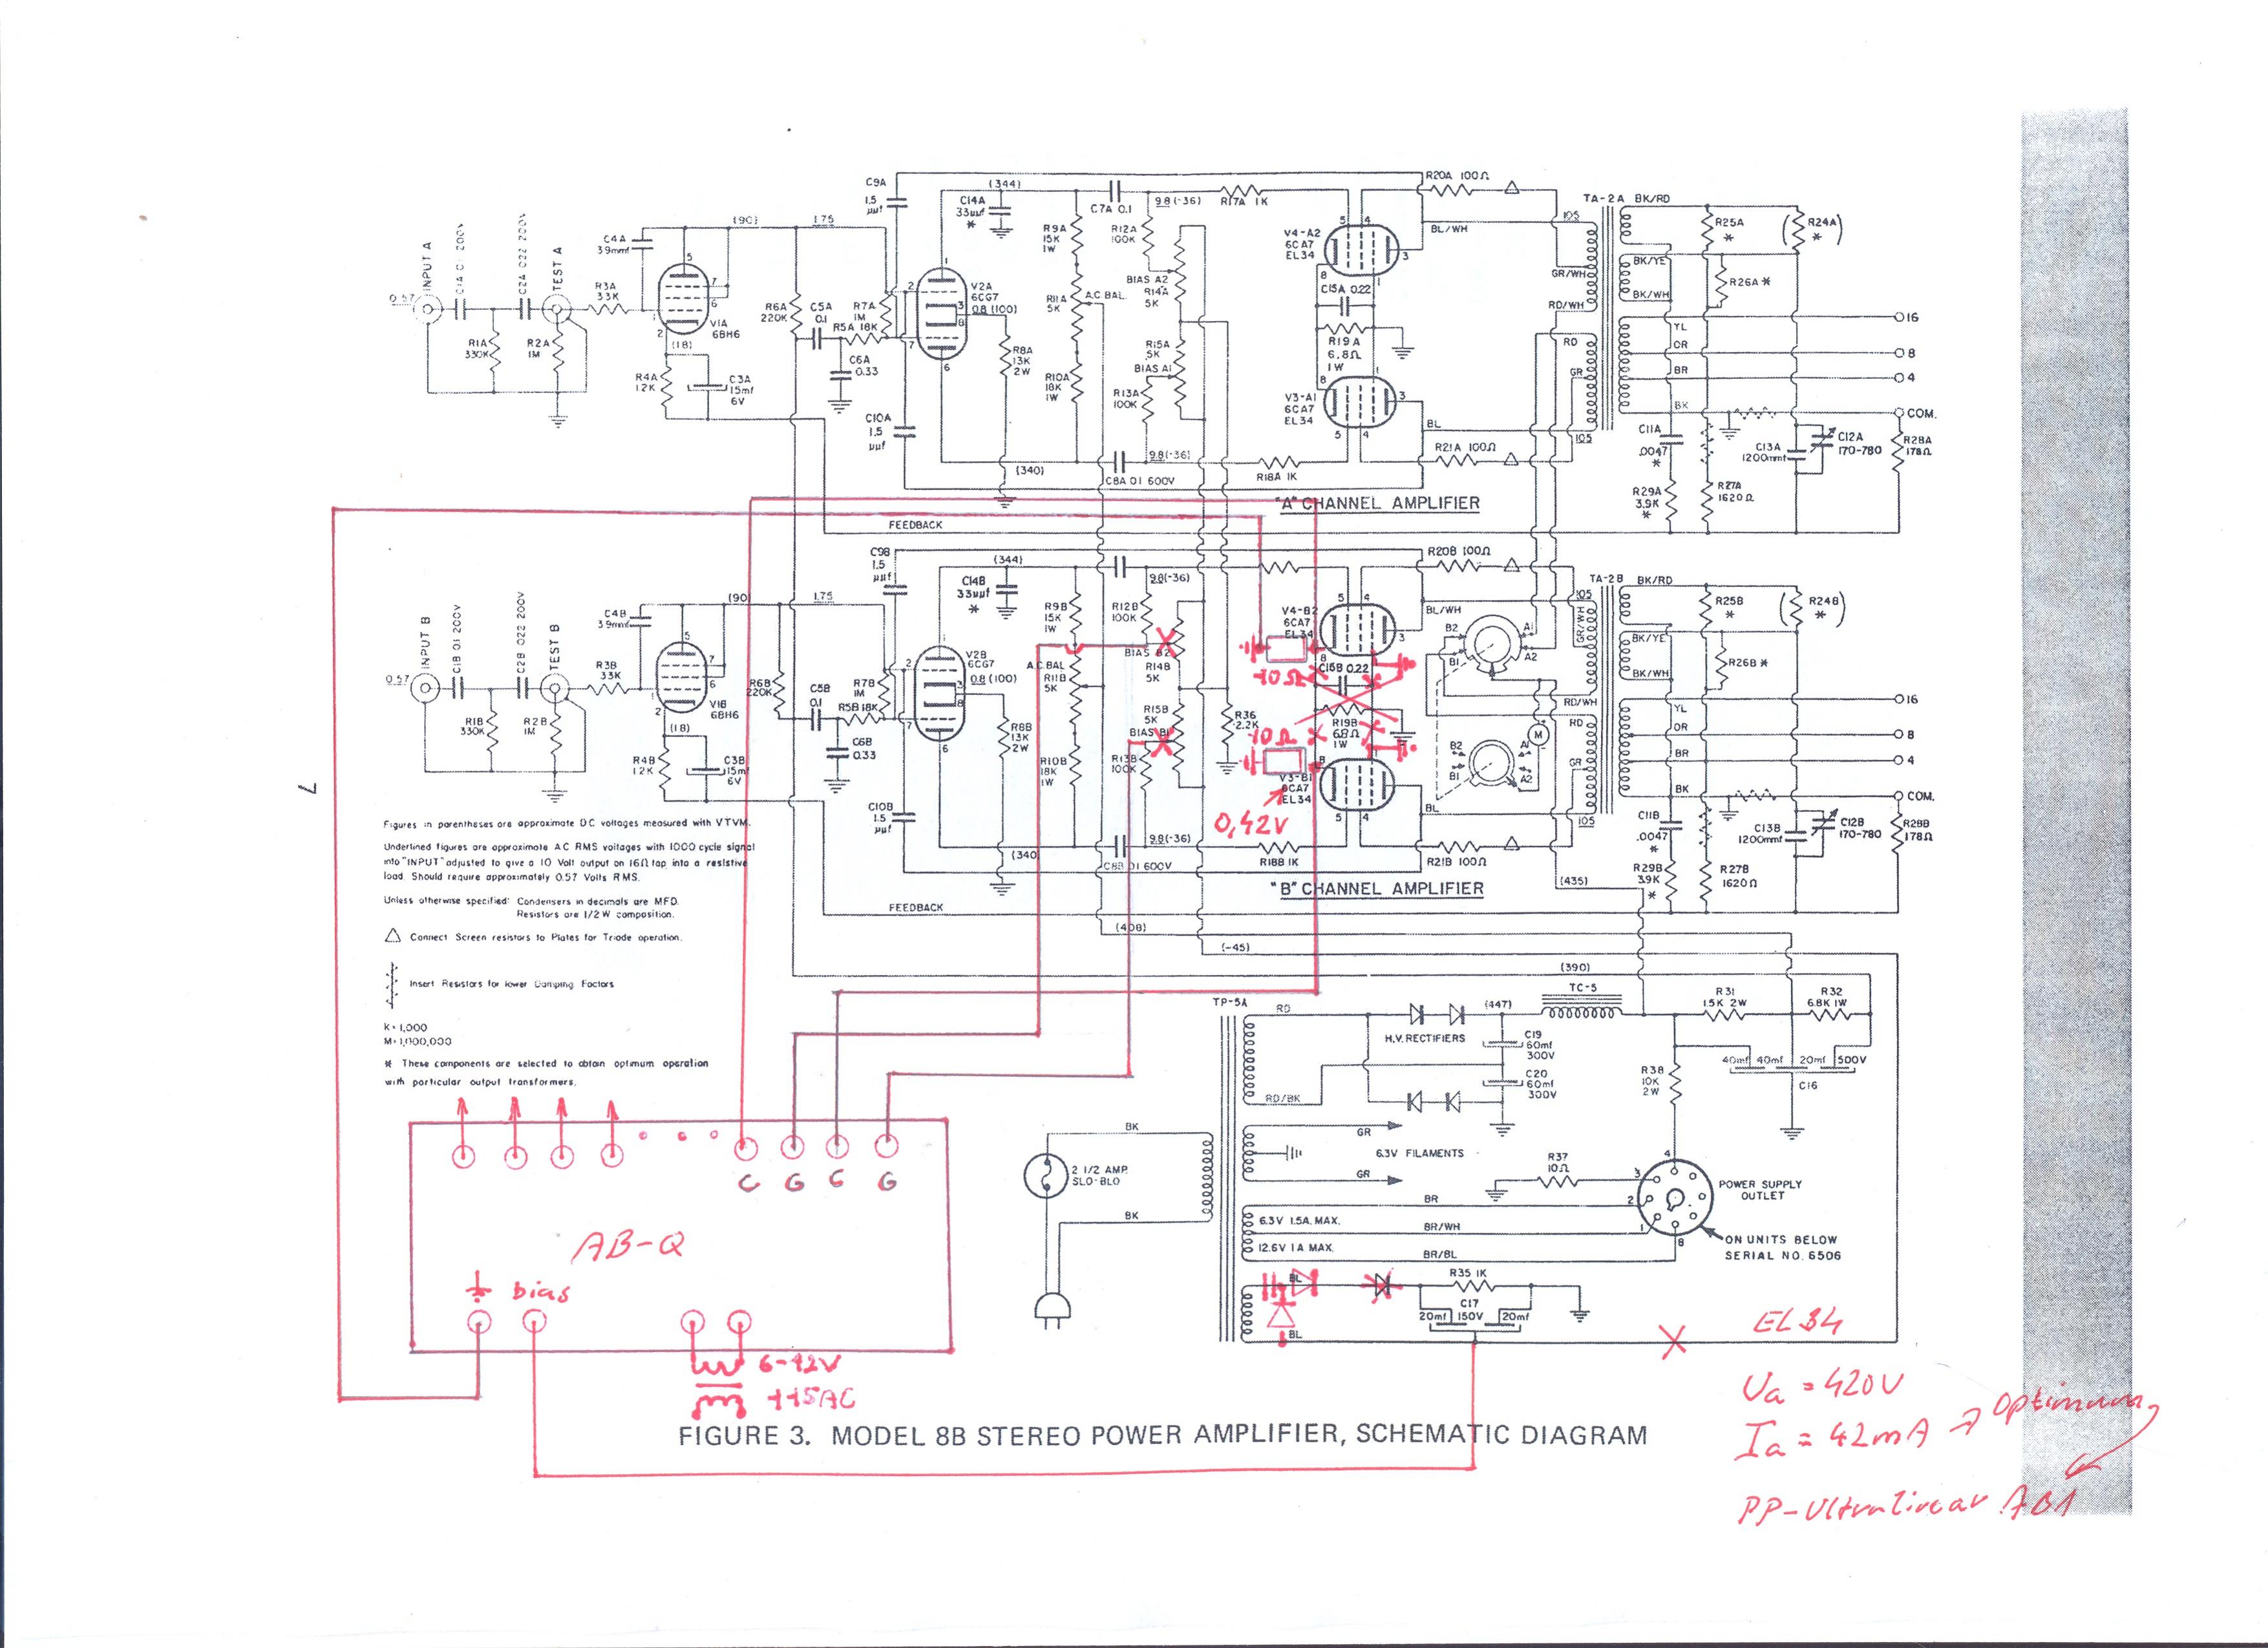 INPUT A
0.57
C1A .01 200V
R1A 330K
C2A .022 200V
TEST A
R2A 1M
R3A 33K
C4A 39mmf
V1A 6BH6
(1.8)
R4A 1.2K
C3A 15mf 6V
(90)
1.75
R6A 220K
C5A 0.1
R5A 18K
R7A 1M
C6A 0.33
C9A 1.5 µµf
C10A 1.5 µµf
(344)
C14A 33µµf *
V2A 6CG7
0.8 (100)
R8A 13K 2W
(340)
R9A 15K 1W
R11A 5K
A.C. BAL.
R10A 18K 1W
C7A 0.1
C8A 0.1 600V
9.8(-36)
R12A 100K
BIAS A2
R14A 5K
R15A 5K
BIAS A1
R13A 100K
9.8(-36)
R17A 1K
R18A 1K
V4-A2 6CA7 EL34
C15A 0.22
R19A 6.8Ω 1W
V3-A1 6CA7 EL34
R20A 100Ω
BL/WH
GR/WH
RD/WH
RD
GR
BL
R21A 100Ω
105
105
TA-2A
BK/RD
BK/YE
BK/WH
YL
OR
BR
BK
R25A *
(R24A) *
R26A *
16
8
4
COM.
C11A .0047 *
R29A 3.9K *
R27A 1620Ω
C13A 1200mmf
C12A 170-780
R28A 178Ω
"A" CHANNEL AMPLIFIER
FEEDBACK
INPUT B
0.57
C1B .01 200V
R1B 330K
C2B .022 200V
TEST B
R2B 1M
R3B 33K
C4B 39mmf
V1B 6BH6
(1.8)
R4B 1.2K
C3B 15mf 6V
(90)
1.75
R6B 220K
C5B 0.1
R5B 18K
R7B 1M
C6B 0.33
C9B 1.5 µµf
C10B 1.5 µµf
(344)
C14B 33µµf *
V2B 6CG7
0.8 (100)
R8B 13K 2W
(340)
R9B 15K 1W
A.C. BAL
R11B 5K
R10B 18K 1W
C8B .01 600V
9.8(-36)
R12B 100K
BIAS B2
R14B 5K
R15B 5K
BIAS B1
R13B 100K
9.8(-36)
R36 2.2K
R18B 1K
V4-B2 6CA7 EL34
10Ω
C15B 0.22
R19B 6.8Ω 1W
10Ω
V3-B1 6CA7 EL34
0,42V
R20B 100Ω
BL/WH
B2
A1
B1
A2
M
B2
A1
B1
A2
BL
R21B 100Ω
105
GR/WH
RD/WH
RD
GR
105
TA-2B
BK/RD
BK/YE
BK/WH
YL
OR
BR
BK
R25B *
(R24B) *
R26B *
16
8
4
COM.
C11B .0047 *
R29B 3.9K *
R27B 1620Ω
C13B 1200mmf
C12B 170-780
R28B 178Ω
"B" CHANNEL AMPLIFIER
FEEDBACK
(435)
(408)
(-45)
(390)
7
Figures in parentheses are approximate DC voltages measured with VTVM.
Underlined figures are approximate AC RMS voltages with 1000 cycle signal
into "INPUT" adjusted to give a 10 Volt output on 16Ω tap into a resistive
load. Should require approximately 0.57 Volts RMS.
Unless otherwise specified: Condensers in decimals are MFD.
Resistors are 1/2 W composition.
△ Connect Screen resistors to Plates for Triode operation.
Insert Resistors for lower Damping Factors
K=1,000
M=1,000,000
* These components are selected to obtain optimum operation
with particular output transformers.
TP-5A
RD
RD/BK
H.V. RECTIFIERS
(447)
C19 60mf 300V
C20 60mf 300V
TC-5
R31 1.5K 2W
R32 6.8K 1W
40mf 40mf 20mf 500V
C16
R38 10K 2W
GR
6.3V FILAMENTS
GR
R37 10Ω
BR
6.3V 1.5A. MAX.
BR/WH
12.6V 1A MAX.
BR/BL
4
3
2
1
8
POWER SUPPLY OUTLET
ON UNITS BELOW SERIAL NO. 6506
BK
2 1/2 AMP. SLO-BLO
BK
BL
BL
R35 1K
C17
20mf 150V 20mf
C G C G
AB-Q
bias
6-12V
115AC
EL34
Ua = 420V
Ia = 42mA → Optimum
PP-Ultralinear AB1
FIGURE 3. MODEL 8B STEREO POWER AMPLIFIER, SCHEMATIC DIAGRAM